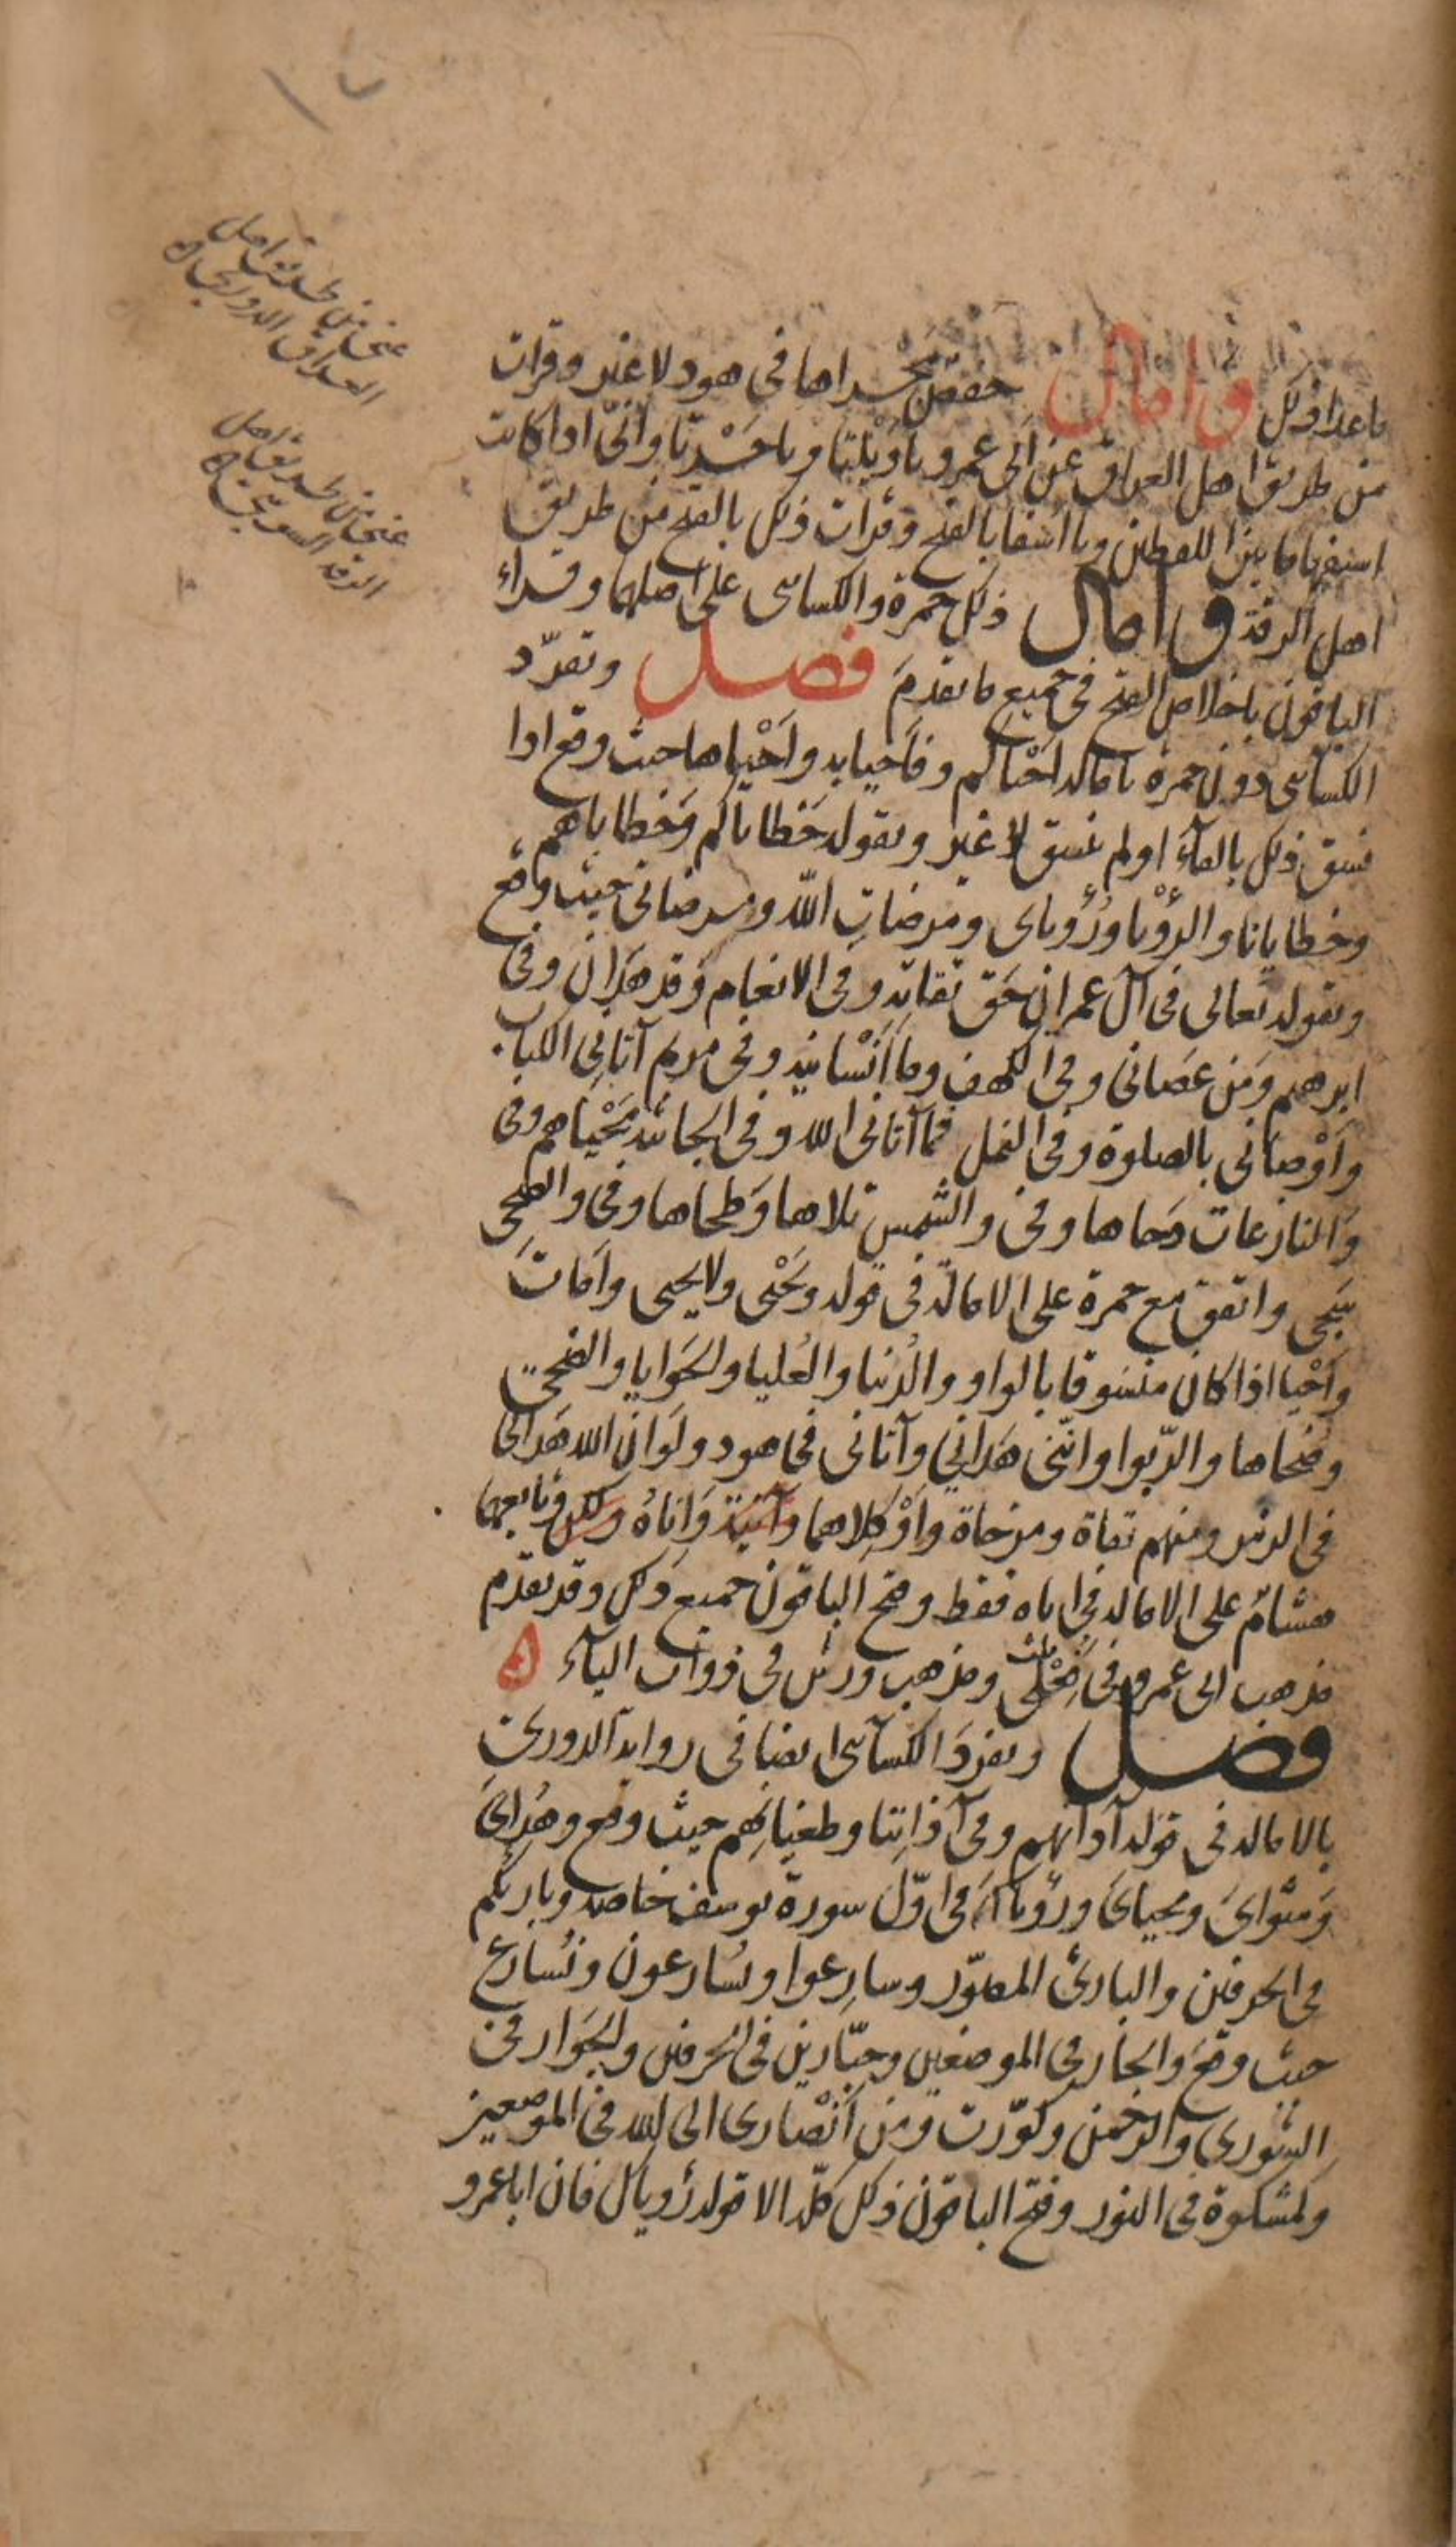 ما عدا ذلك وامال حفص مجراها فى هود لا غير وقرات
من طريق اهل العراق عن ابى عمرو ياويلتا وياحسرتا وانّى اذا كانت
استفهاما بين اللفظين ويا اسفا بالفتح وقرات ذلك بالفتح من طريق
اهل الرقة وامال ذلك حمزة والكسائى على اصلهما وقراء
الباقون باخلاص الفتح فى جميع ما تقدم فصل وتفرّد
الكسائى دون حمزة بامالة احياكم وفاحيا به واحياها حيث وقع اذا
نسق ذلك بالفآء او لم ينسق لا غير وبقوله خطاياكم وخطاياهم
وخطايانا والرؤيا ورؤياى ومرضات الله ومرضاتى حيث وقع
وبقوله تعالى فى آل عمران حق تقاته وفى الانعام وقد هدان وفى
ابرهيم ومن عصانى وفى الكهف وما انسانيه وفى مريم آتانى الكتاب
واوصانى بالصلوة وفى النمل فما آتانى الله وفى الجاثية محياهم وفى
والنازعات دحاها وفى والشمس تلاها وطحاها وفى والضحى
سجى واتفق مع حمزة على الامالة فى قوله ويحيى ولا يحيى وامات
واحيا اذا كان منسوقا بالواو والدنيا والعليا والحوايا والضحى
وضحاها والربوا واننى هدانى وآتانى فى هود ولو ان الله هدانى
فى الزمر ومنهم تقاة ومزجاة واو كلاهما واناه ولكن وتابعهما
هشام على الامالة فى اناه فقط وفتح الباقون جميع ذلك وقد تقدم
مذهب ابى عمرو فى فعلى ومذهب ورش فى ذوات اليآء
فصل وتفرد الكسآئى ايضا فى رواية الدورى
بالامالة فى قوله آذانهم وفى آذاننا وطغيانهم حيث وقع وهداى
ومثواى ومحياى ورؤياك فى اوّل سورة يوسف خاصة وبارئكم
فى الحرفين والبارئ المصوّر وسارعوا ويسارعون ونسارع
حيث وقع والجار فى الموضعين وجبّارين فى الحرفين والجوار فى
الشورى والرحمن وكوّرت ومن انصارى الى الله فى الموضعين
وكمشكوة فى النور وفتح الباقون ذلك كلّه الا قوله رؤياك فان ابا عمرو
عنى من طريق اهل
العراق الدورى
عنى من طريق اهل
الرقة السوسى